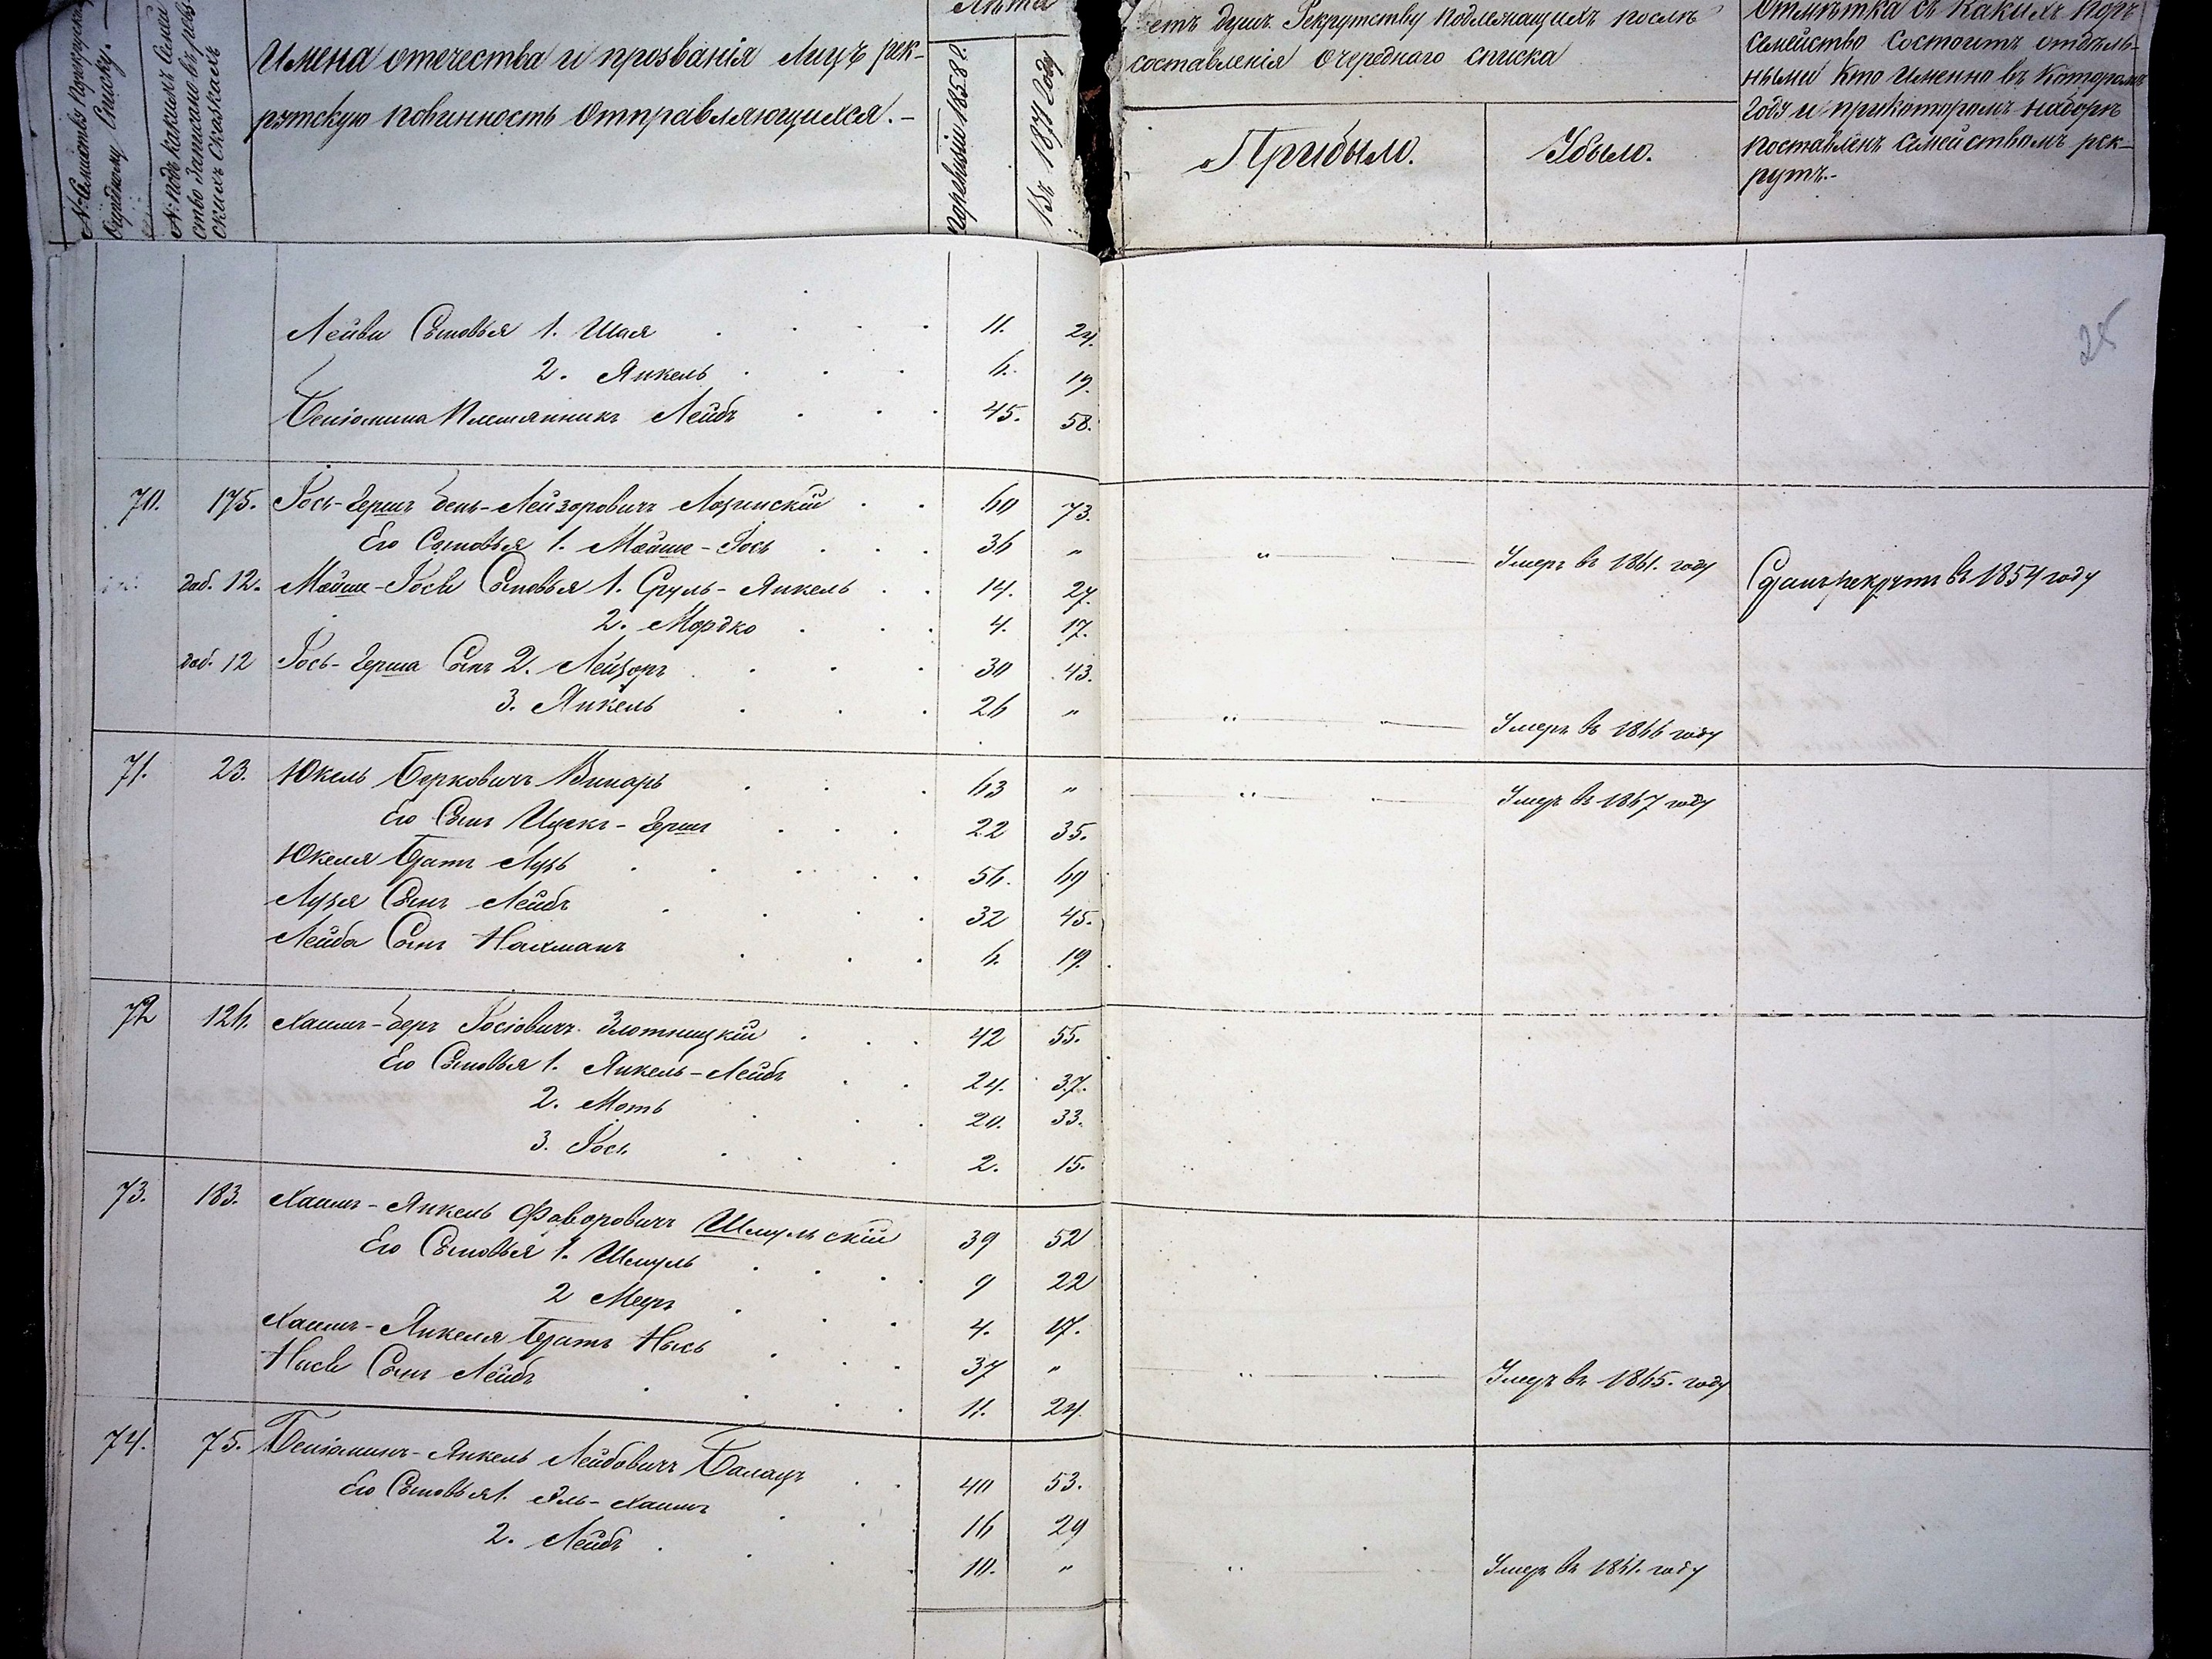 № Семейству по
Очередному Списку.
№ Подъ какимъ Семей
ство Записано въ рев
скихъ Сказкахъ
Имена отечества и прозванія Лицъ рек-
рутскую повинность Отправляющихся. -
Лѣта
По ревизіи 1858 г.
Въ 1871 Году
етъ душъ Рекрутству подлежащихъ послѣ
составленія Очереднаго списка
Прибыло.
Убыло.
Отмѣтка съ какихъ поръ
Семейство состоитъ отдѣль-
нымъ Кто Именно въ Которомъ
Году и при которомъ наборѣ
поставленъ Семействомъ рек-
рутъ.-
25
Лейви Сыновья 1. Шая 11. 24.
2. Янкель 6. 19.
Беніомина Племянникъ Лейбъ 45. 58.
70. 175. Іось-Гершъ бень-Лейзоровичъ Лозинскій 60 73.
Его Сыновья 1. Мойше-Іось 36 " " Умеръ въ 1861. году Сданъ рекрутъ въ 1854 году
доб. 12. Мойше-Іося Сыновья 1. Сруль-Янкель 14. 27.
2. Мордко 4. 17.
доб. 12 Іось-Герша Сынъ 2. Лейзоръ 30 43.
3. Янкель 26 " " Умеръ въ 1866 году
71. 23. Юкель Берковичъ Винаръ 63 " " Умеръ въ 1867 году
Его Сынъ Ицекъ-Гершъ 22 35.
Юкеля Братъ Лузь 56. 69
Лузя Сынъ Лейбъ 32 45.
Лейба Сынъ Нахманъ 6. 19.
72 126. Хаимъ-беръ Іосіовичъ Злотницкій 42 55.
Его Сыновья 1. Янкель-Лейбъ 24. 37.
2. Моть 20. 33.
3. Іось 2. 15.
73. 183. Хаимъ-Янкель Фаворовичъ Шмульскій 39 52
Его Сыновья 1. Шмуль 9 22
2 Мееръ 4. 17.
Хаимъ-Янкеля Братъ Нысь 37 " " Умеръ въ 1865. году
Нысе Сынъ Лейбъ 11. 24.
74. 75. Беніоминъ-Янкель Лейбовичъ 40 53.
Его Сыновья 1. Эль-Хаимъ 16 29
2. Лейбъ 10. " " Умеръ въ 1861. году